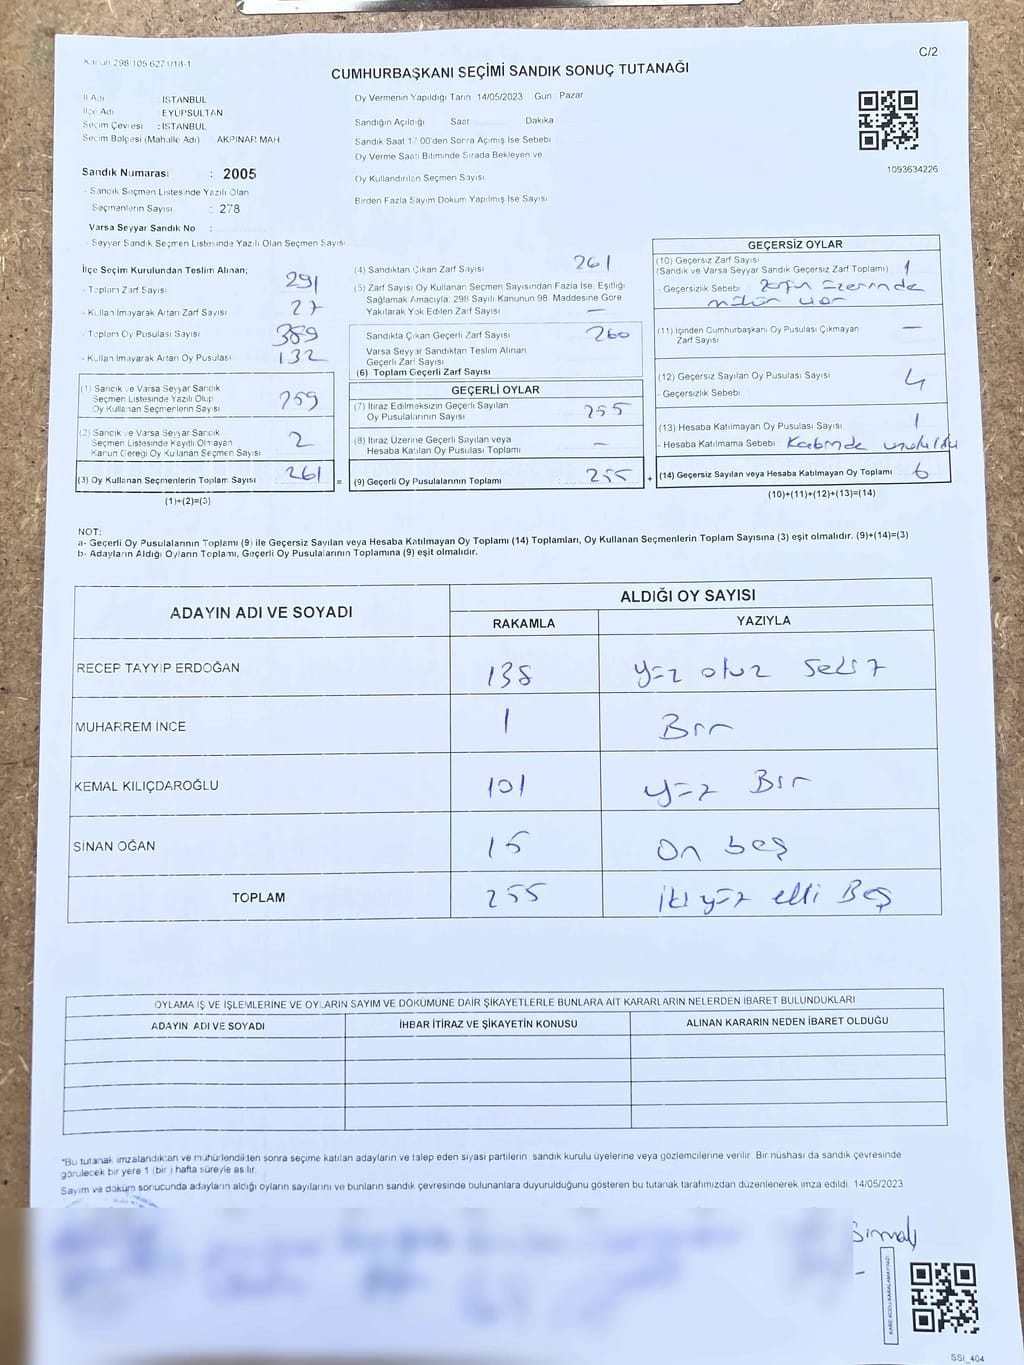 Kanun 298/105 6271/18-1
C/2
CUMHURBAŞKANI SEÇİMİ SANDIK SONUÇ TUTANAĞI
İl Adı : İSTANBUL
İlçe Adı : EYÜPSULTAN
Seçim Çevresi : İSTANBUL
Seçim Bölgesi (Mahalle Adı) AKPINAR MAH
Sandık Numarası : 2005
- Sandık Seçmen Listesinde Yazılı Olan
Seçmenlerin Sayısı : 278
Varsa Seyyar Sandık No :
- Seyyar Sandık Seçmen Listesinde Yazılı Olan Seçmen Sayısı
Oy Vermenin Yapıldığı Tarih 14/05/2023 Gün Pazar
Sandığın Açıldığı Saat Dakika
Sandık Saat 17:00'den Sonra Açılmış İse Sebebi
Oy Verme Saati Bitiminde Sırada Bekleyen ve
Oy Kullandırılan Seçmen Sayısı
Birden Fazla Sayım Döküm Yapılmış İse Sayısı
1093634226
İlçe Seçim Kurulundan Teslim Alınan;
- Toplam Zarf Sayısı 291
- Kullanılmayarak Artan Zarf Sayısı 27
- Toplam Oy Pusulası Sayısı 389
- Kullanılmayarak Artan Oy Pusulası 132
(1) Sandık ve Varsa Seyyar Sandık
Seçmen Listesinde Yazılı Olup
Oy Kullanan Seçmenlerin Sayısı 259
(2) Sandık ve Varsa Seyyar Sandık
Seçmen Listesinde Kayıtlı Olmayan
Kanun Gereği Oy Kullanan Seçmen Sayısı 2
(3) Oy Kullanan Seçmenlerin Toplam Sayısı 261
(1)+(2)=(3)
(4) Sandıktan Çıkan Zarf Sayısı 261
(5) Zarf Sayısı Oy Kullanan Seçmen Sayısından Fazla İse, Eşitliği
Sağlamak Amacıyla, 298 Sayılı Kanunun 98. Maddesine Göre
Yakılarak Yok Edilen Zarf Sayısı —
Sandıkta Çıkan Geçerli Zarf Sayısı 260
Varsa Seyyar Sandıktan Teslim Alınan
Geçerli Zarf Sayısı
(6) Toplam Geçerli Zarf Sayısı
GEÇERLİ OYLAR
(7) İtiraz Edilmeksizin Geçerli Sayılan
Oy Pusulalarının Sayısı 255
(8) İtiraz Üzerine Geçerli Sayılan veya
Hesaba Katılan Oy Pusulası Toplamı —
= (9) Geçerli Oy Pusulalarının Toplamı 255 +
GEÇERSİZ OYLAR
(10) Geçersiz Zarf Sayısı
(Sandık ve Varsa Seyyar Sandık Geçersiz Zarf Toplamı) 1
- Geçersizlik Sebebi zarfın üzerinde
mühür var
(11) İçinden Cumhurbaşkanı Oy Pusulası Çıkmayan
Zarf Sayısı —
(12) Geçersiz Sayılan Oy Pusulası Sayısı 4
- Geçersizlik Sebebi
(13) Hesaba Katılmayan Oy Pusulası Sayısı 1
- Hesaba Katılmama Sebebi Kabinde unutuldu
(14) Geçersiz Sayılan veya Hesaba Katılmayan Oy Toplamı 6
(10)+(11)+(12)+(13)=(14)
NOT:
a- Geçerli Oy Pusulalarının Toplamı (9) ile Geçersiz Sayılan veya Hesaba Katılmayan Oy Toplamı (14) Toplamları, Oy Kullanan Seçmenlerin Toplam Sayısına (3) eşit olmalıdır. (9)+(14)=(3)
b- Adayların Aldığı Oyların Toplamı, Geçerli Oy Pusulalarının Toplamına (9) eşit olmalıdır.
ADAYIN ADI VE SOYADI
ALDIĞI OY SAYISI
RAKAMLA YAZIYLA
RECEP TAYYİP ERDOĞAN 138 yüz otuz sekiz
MUHARREM İNCE 1 Bir
KEMAL KILIÇDAROĞLU 101 yüz Bir
SİNAN OĞAN 15 on beş
TOPLAM 255 iki yüz elli Beş
OYLAMA İŞ VE İŞLEMLERİNE VE OYLARIN SAYIM VE DÖKÜMÜNE DAİR ŞİKAYETLERLE BUNLARA AİT KARARLARIN NELERDEN İBARET BULUNDUKLARI
ADAYIN ADI VE SOYADI İHBAR İTİRAZ VE ŞİKAYETİN KONUSU ALINAN KARARIN NEDEN İBARET OLDUĞU
*Bu tutanak imzalandıktan ve mühürlendikten sonra seçime katılan adayların ve talep eden siyasi partilerin sandık kurulu üyelerine veya gözlemcilerine verilir. Bir nüshası da sandık çevresinde
görülecek bir yere 1 (bir) hafta süreyle asılır.
Sayım ve döküm sonucunda adayların aldığı oyların sayılarını ve bunların sandık çevresinde bulunanlara duyurulduğunu gösteren bu tutanak tarafımızdan düzenlenerek imza edildi. 14/05/2023
KARE KODU KARALAMAYINIZ!
SSI_404